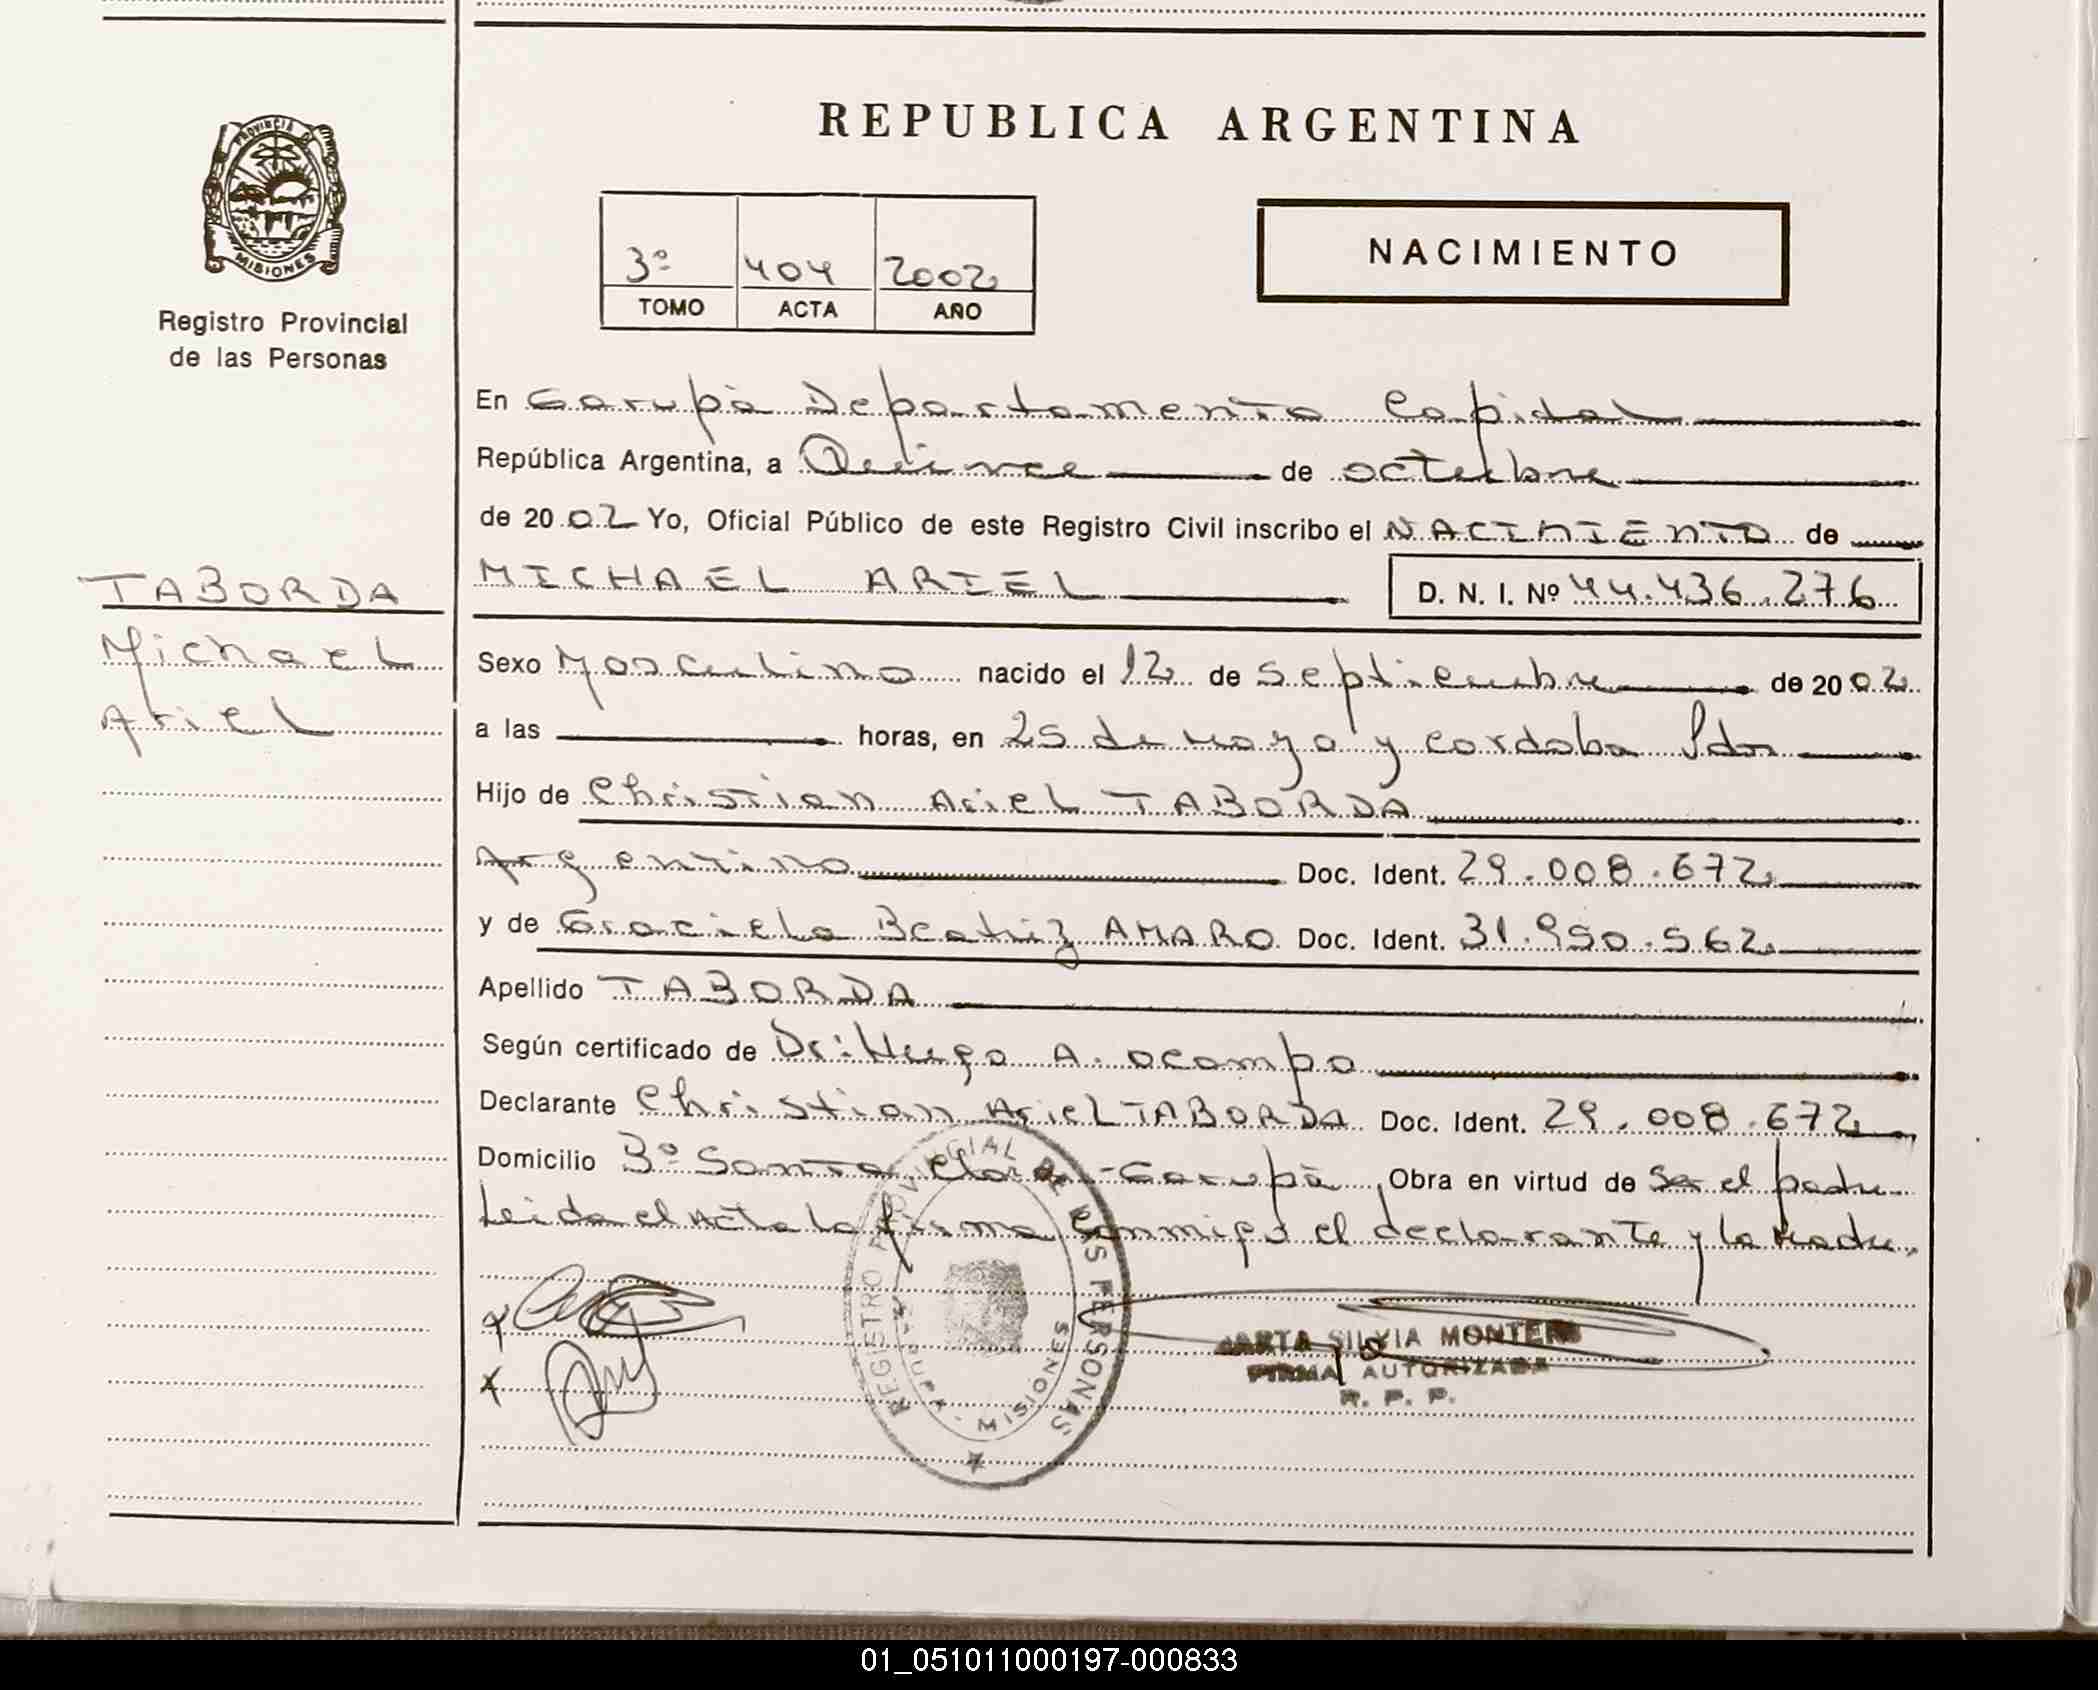 REPUBLICA ARGENTINA
PROVINCIA DE
MISIONES
Registro Provincial
de las Personas
3º 404 2002
TOMO ACTA AÑO
NACIMIENTO
En Garupá Departamento Capital
República Argentina, a Quince de octubre
de 2002 Yo, Oficial Público de este Registro Civil inscribo el NACIMIENTO de
MICHAEL ARIEL D. N. I. Nº 44.436.276
TABORDA
Michael
Ariel
Sexo Masculino nacido el 12 de septiembre de 2002
a las horas, en 25 de mayo y cordoba Pdas
Hijo de Christian Ariel TABORDA
Argentino Doc. Ident. 29.008.672
y de Graciela Beatriz AMARO Doc. Ident. 31.950.562
Apellido TABORDA
Según certificado de Dr: Hugo A. ocampo
Declarante Christian Ariel TABORDA Doc. Ident. 29.008.672
Domicilio Bº Santa Clara - Garupá Obra en virtud de ser el padre
Leida el Acta la firma conmigo el declarante y la Madre.
REGISTRO PROVINCIAL DE LAS PERSONAS
GARUPA - MISIONES
MARTA SILVIA MONTERO
FIRMA AUTORIZADA
R. P. P.
01_051011000197-000833